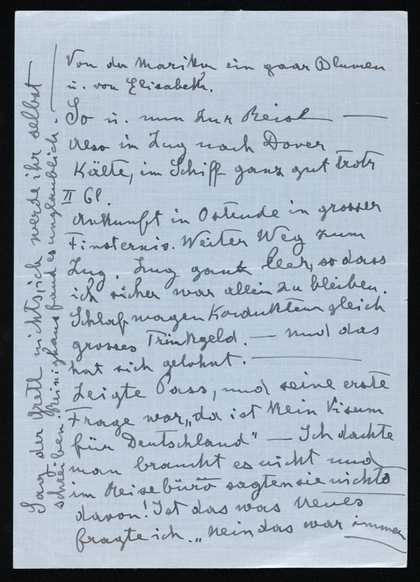 Von der Marika ein paar Blumen
u. von Elisabeth.
So u. nun zur Reise —
also im Zug nach Dover
Kälte, im Schiff ganz gut trotz
II Cl.
Ankunft in Ostende in grosser
Finsternis. Weiter Weg zum
Zug. Zug ganz leer, so dass
ich sicher war allein zu bleiben.
Schlafwagen Kondukteur gleich
grosses Trinkgeld. — und das
hat sich gelohnt. —
Zeigte Pass, und seine erste
Frage war „da ist kein Visum
für Deutschland" — Ich dachte
man braucht es nicht und
im Reisebüro sagten sie nichts
davon! Ist das was neues
fragte ich. „Nein das war immer
Sag der Gretl nichts, ich werde ihr selbst
schreiben. fand es unglaublich.